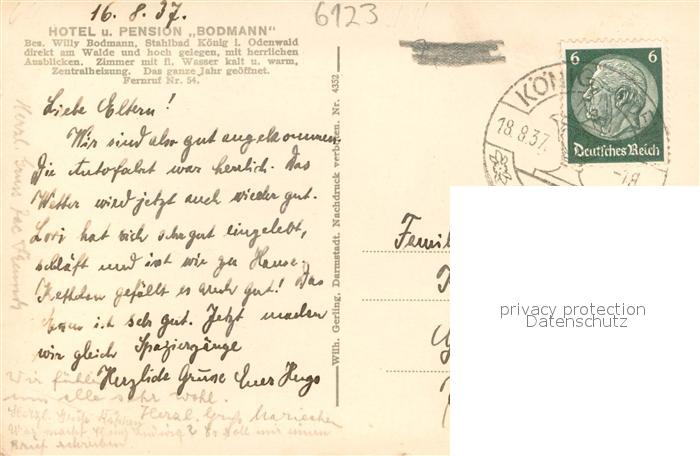 16.8.37.
6923
HOTEL u. PENSION „BODMANN"
Bes. Willy Bodmann, Stahlbad König i. Odenwald
direkt am Walde und hoch gelegen, mit herrlichen
Ausblicken. Zimmer mit fl. Wasser kalt u. warm,
Zentralheizung. Das ganze Jahr geöffnet.
Fernruf Nr. 54.
Liebe Eltern!
Wir sind also gut angekommen.
Die Autofahrt war herrlich. Das
Wetter wird jetzt auch wieder gut.
Lori hat sich sehr gut eingelebt,
schläft und isst wie zu Hause.
gefällt es auch gut! Das
Essen ist sehr gut. Jetzt machen
wir gleich Spaziergänge
Herzliche Grüsse Euer Hugo
Wir fühlen
uns alle sehr wohl.
Herzl. Grüße
Herzl. Gruß Mariechen
Was macht Ludwig? Er soll mir einen
Brief schreiben.
Wilh. Gerling, Darmstadt. Nachdruck verboten. Nr. 4352
KÖNIG
18.8.37
-18
6 6
Deutsches Reich
Famil
privacy protection
Datenschutz